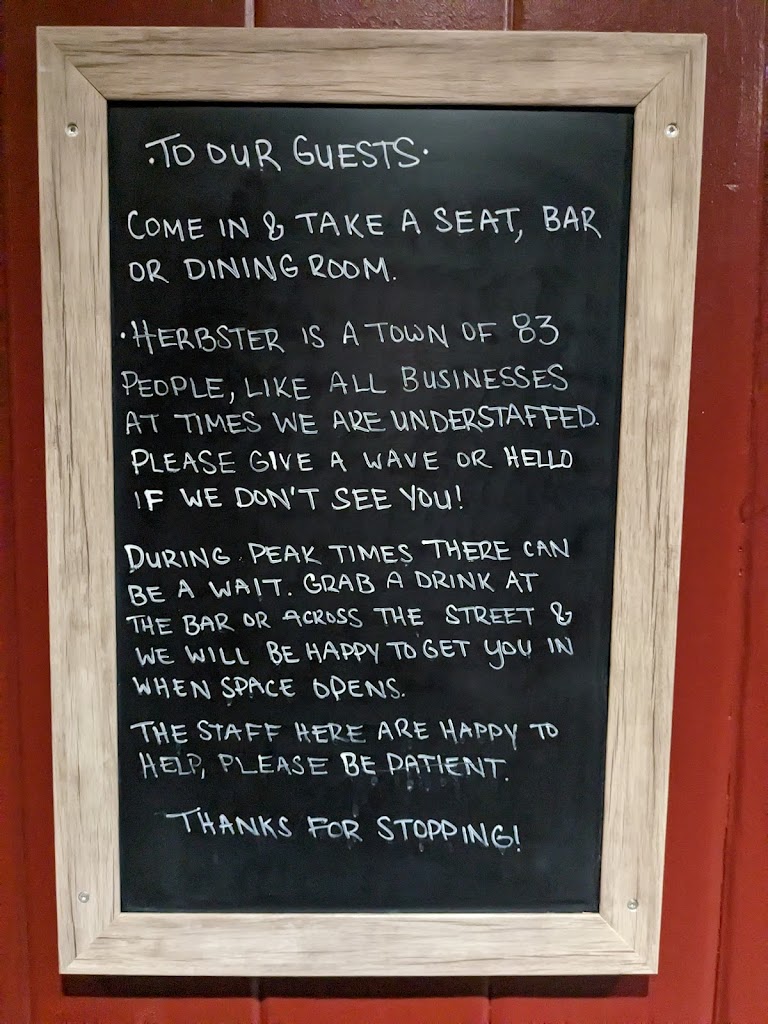 ·TO OUR GUESTS·
COME IN & TAKE A SEAT, BAR
OR DINING ROOM.
·HERBSTER IS A TOWN OF 83
PEOPLE, LIKE ALL BUSINESSES
AT TIMES WE ARE UNDERSTAFFED.
PLEASE GIVE A WAVE OR HELLO
IF WE DON'T SEE YOU!
DURING PEAK TIMES THERE CAN
BE A WAIT. GRAB A DRINK AT
THE BAR OR ACROSS THE STREET &
WE WILL BE HAPPY TO GET YOU IN
WHEN SPACE OPENS.
THE STAFF HERE ARE HAPPY TO
HELP, PLEASE BE PATIENT.
THANKS FOR STOPPING!